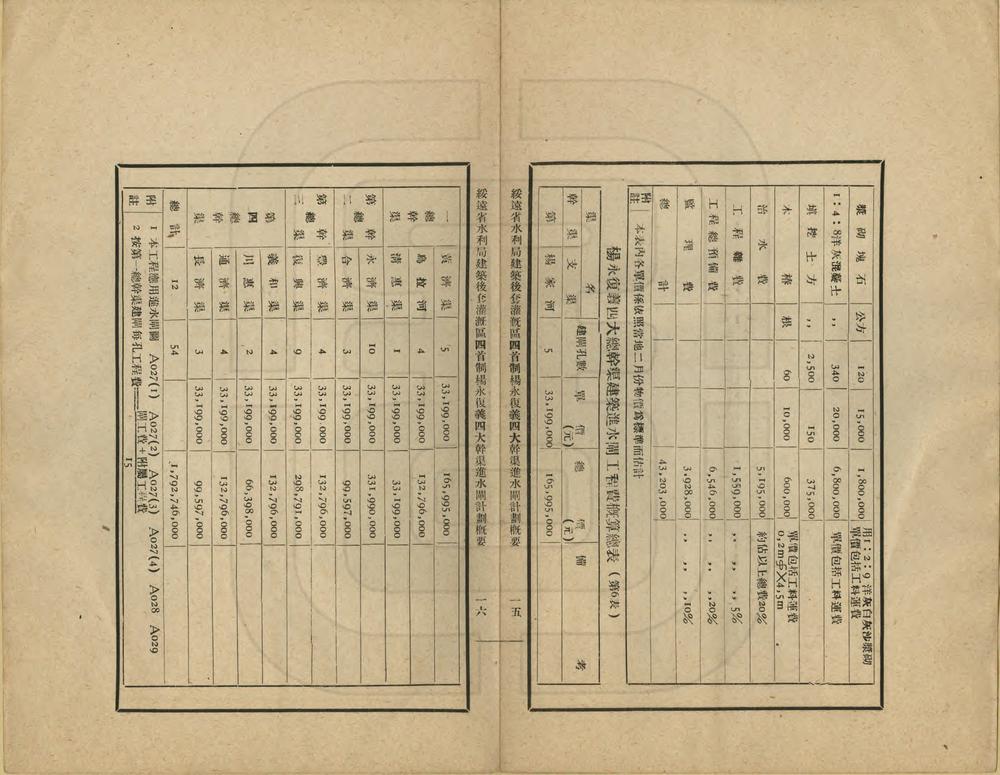 漿砌塊石 公方 120 15,000 1,800,000 用1:2:9洋灰白灰沙漿砌 單價包括工料運費
1:4:8洋灰混凝土 ,, 340 20,000 6,800,000 單價包括工料運費
填挖土方 ,, 2,500 150 375,000
木樁 根 60 10,000 600,000 單價包括工料運費 0,2m中×4,5m
治水費 5,195,000 約佔以上總費20%
工程雜費 1,559,000 ,, ,, 5%
工程總預備費 6,546,000 ,, ,,20%
監理費 3,928,000 ,, ,,10%
總計 43,203,000
附註 本表內各單價係依照當地二月份物價爲標準而估計
楊永復義四大總幹渠建築進水閘工程費概算總表(第6表)
渠名 建閘孔數 單價(元) 總價(元) 備考
幹渠 支渠
第 楊家河 5 33,199,000 165,995,000
綏遠省水利局建築後套灌溉區四首制楊永復義四大幹渠進水閘計劃概要 一五
綏遠省水利局建築後套灌溉區四首制楊永復義四大幹渠進水閘計劃概要 一六
一總幹渠 黃濟渠 5 33,199,000 165,995,000
烏拉河 4 33,199,000 132,796,000
清惠渠 1 33,199,000 33,199,000
第二總幹渠 永濟渠 10 33,199,000 331,990,000
合濟渠 3 33,199,000 99,597,000
第三總幹渠 豐濟渠 4 33,199,000 132,796,000
復興渠 9 33,199,000 298,791,000
第四總幹渠 義和渠 4 33,199,000 132,796,000
川惠渠 2 33,199,000 66,398,000
通濟渠 4 33,199,000 132,796,000
長濟渠 3 33,199,000 99,597,000
總計 12 54 1,792,746,000
附註 1 本工程應用進水閘圖 A027(1) A027(2) A027(3) A027(4) A028 A029
2 按第一總幹渠建閘每孔工程費=閘工費+附屬工程費
15